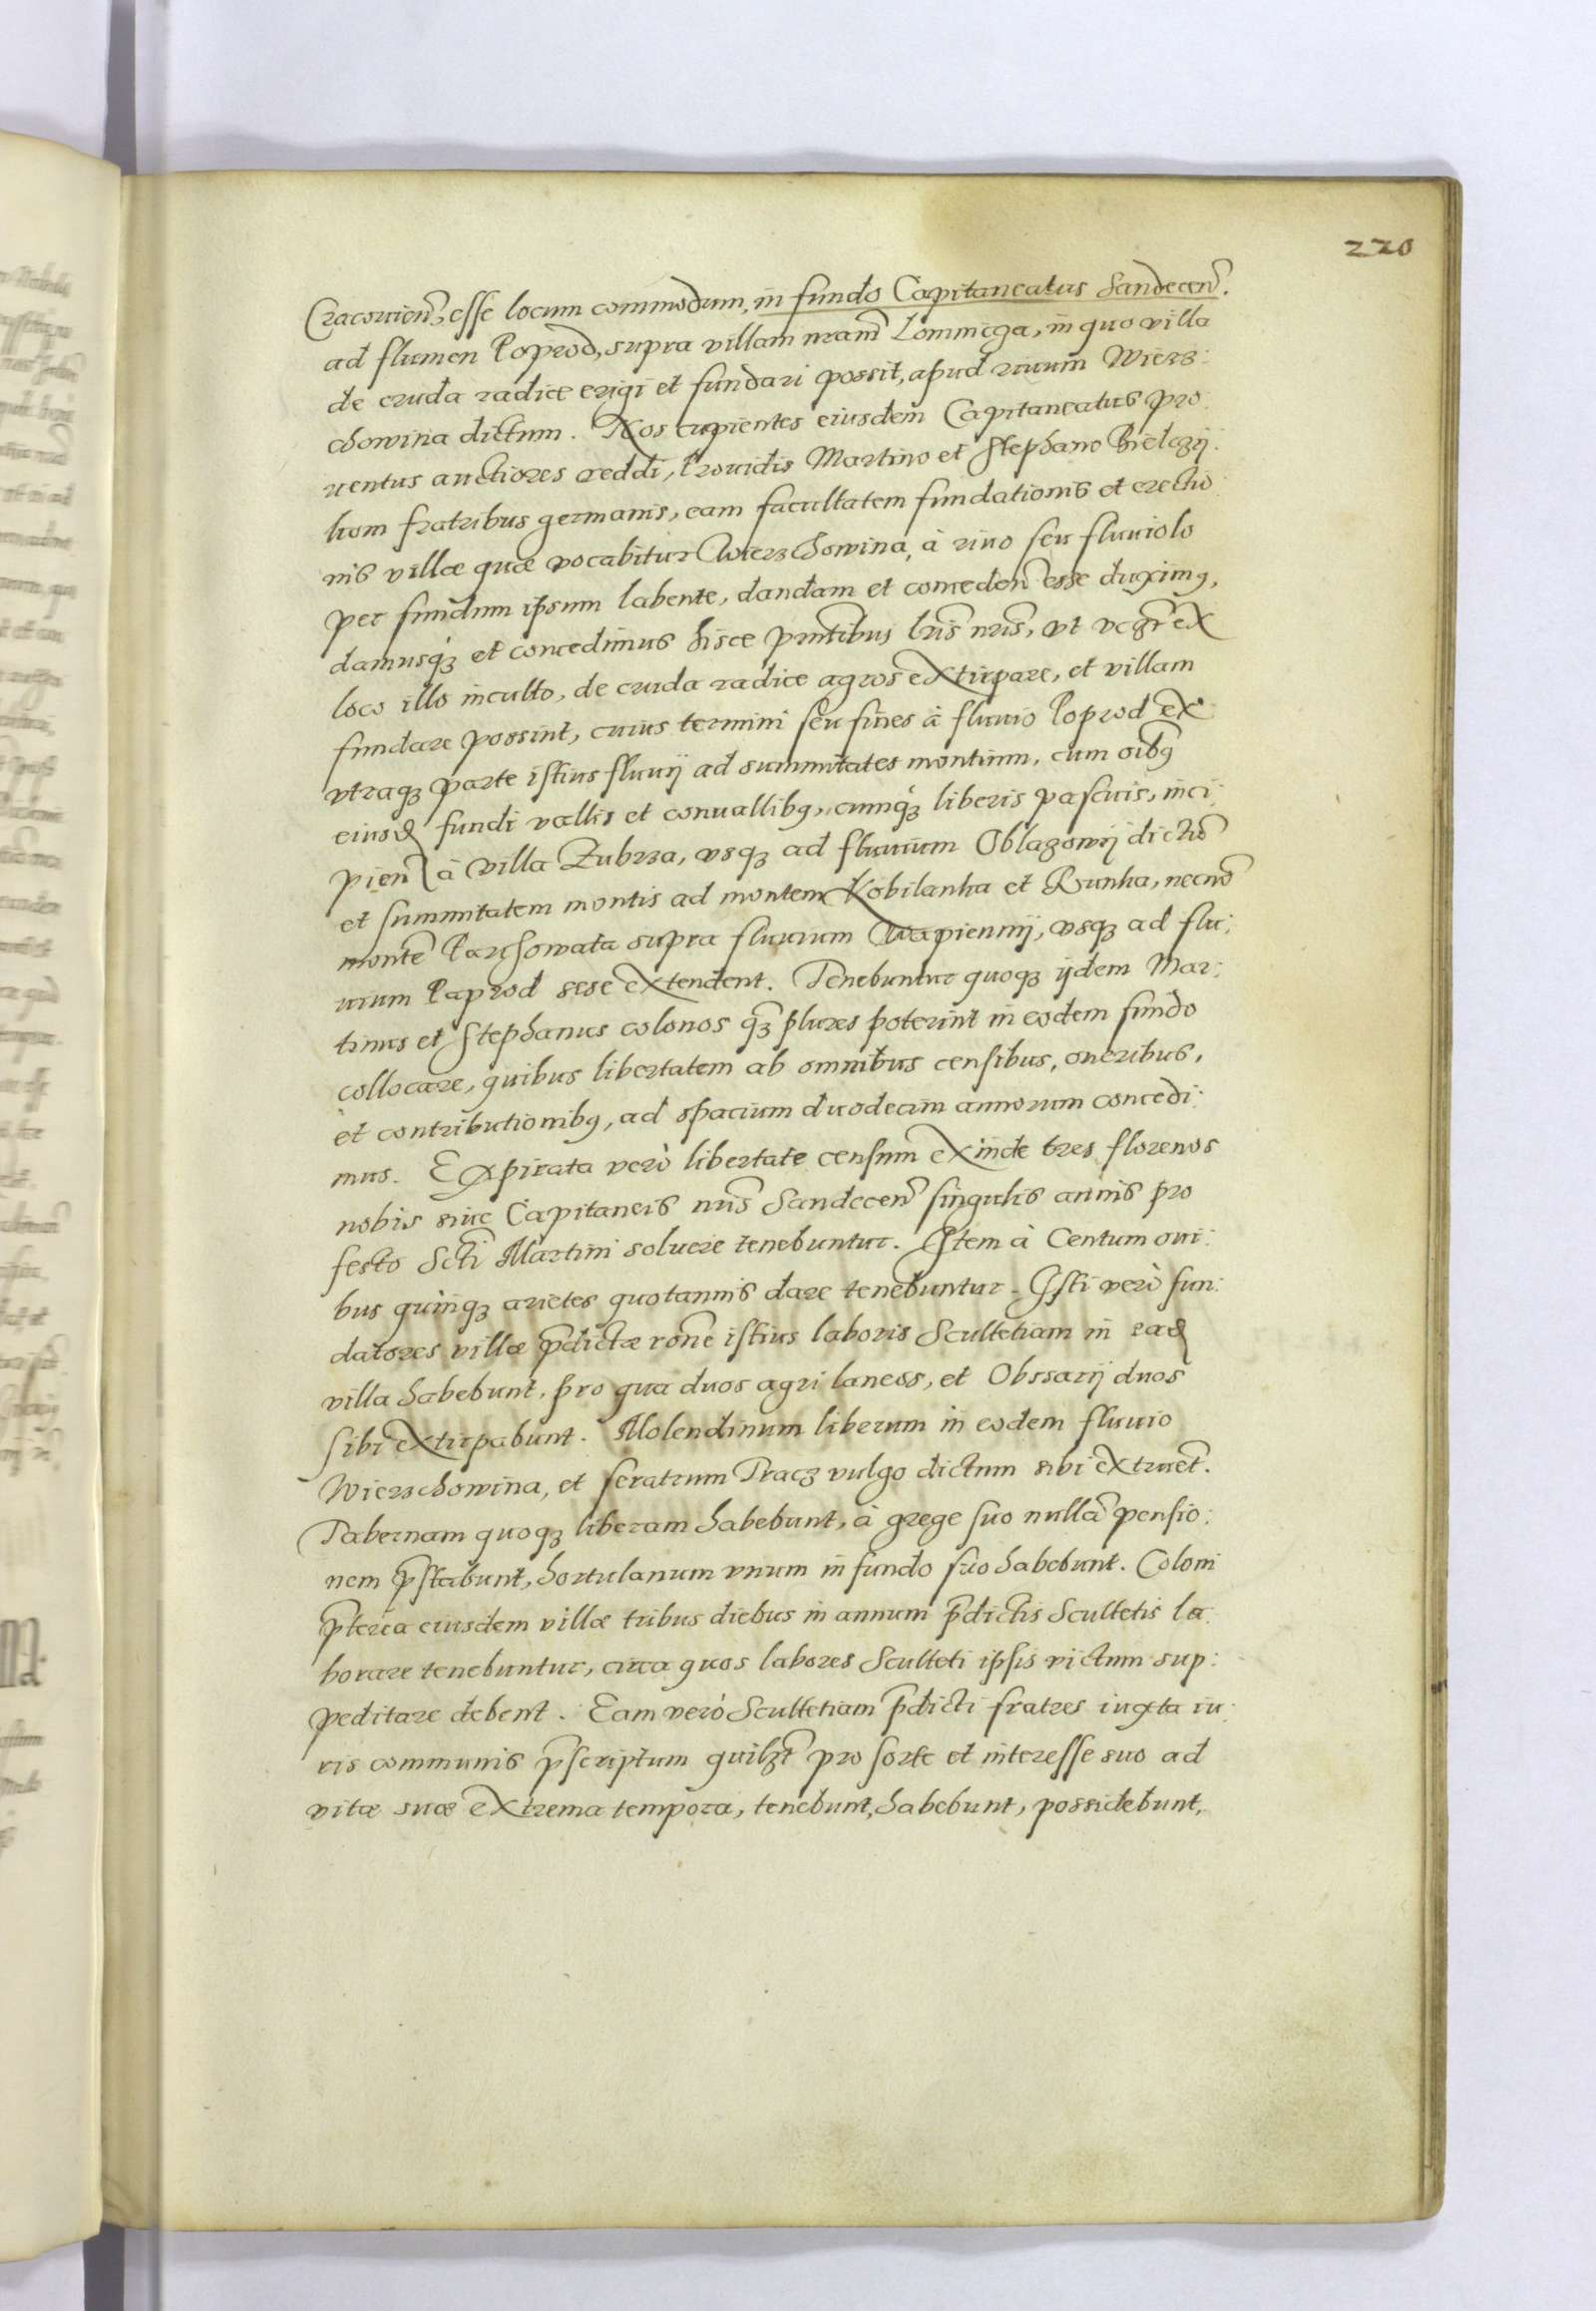 220
Cracovien̄, esse locum commodum, in fundo Capitaneatus Sandecen̄.
ad flumen Poprod, supra villam nram̄ Lomnicza, in quo villa
de cruda radice erigi et fundari possit, apud riuum Wierz:
chowina dictum. Nos cupientes eiusdem Capitaneatus pro
uentus auctiores reddi, Prouidis Martino et Stephano
fratribus germanis, eam facultatem fundationis et erectio
nis villæ quæ vocabitur Wierzchowina, à riuo seu fluuiolo
per fundum ipsum labente, dandam et conceden̄ esse duximꝰ,
damusq́ꝫ et concedimus hisce pn̄tibus lr̄is nr̄is, vt ex
loco illo inculto, de cruda radice agros extirpare, et villam
fundare possint, cuius termini seu fines à fluuio Poprod ex
vtraqꝫ parte istius fluuij ad summitates montium, cum oībꝰ
eiusd̄ fundi vallis et conuallibꝰ, cumq́ꝫ liberis pascuis, inci:
pien̄ à villa Zubrza, vsqꝫ ad fluuium Oblazowij dictū
et summitatem montis ad montem Kobilanka et Runka, necnō
montē Parchowata supra fluuium Wapiennij, vsqꝫ ad flu:
uium Paprod sese extendent. Tenebuntur quoqꝫ ijdem Mar:
tinus et Stephanus colonos qꝫ plures poterint in eodem fundo
collocare, quibus libertatem ab omnibus censibus, oneribus,
et contributionibꝰ, ad spacium duodecim annorum concedi:
mus. Expirata verò libertate censum exinde tres florenos
nobis siue Capitaneis nr̄is Sandecen̄ singulis annis pro
festo Sctī Martini soluere tenebuntur. Item à Centum oui:
bus quinqꝫ arietes quotannis dare tenebuntur. Isti verò fun:
datores villæ p̄dictæ rōne istius laboris Scultetiam in ead̄
villa habebunt, pro qua duos agri laneos, et Obssarij duos
sibi extirpabunt. Molendinum liberum in eodem fluuio
Wierzchowina, et seratrum Tracz vulgo dictum sibi extruēt.
Tabernam quoqꝫ liberam habebunt, à grege suo nullā pensio:
nem p̄stabunt, hortulanum vnum in fundo suo habebunt. Coloni
p̄terea eiusdem villæ tribus diebus in annum p̄dictis Scultetis la
borare tenebuntur, circa quos labores Sculteti ipsis victum sup:
peditare debent. Eam verò Scultetiam p̄dicti fratres iuxta iu:
ris communis p̄scriptum quilꝫt pro sorte et interesse suo ad
vitæ suæ extrema tempora, tenebunt, habebunt, possidebunt,